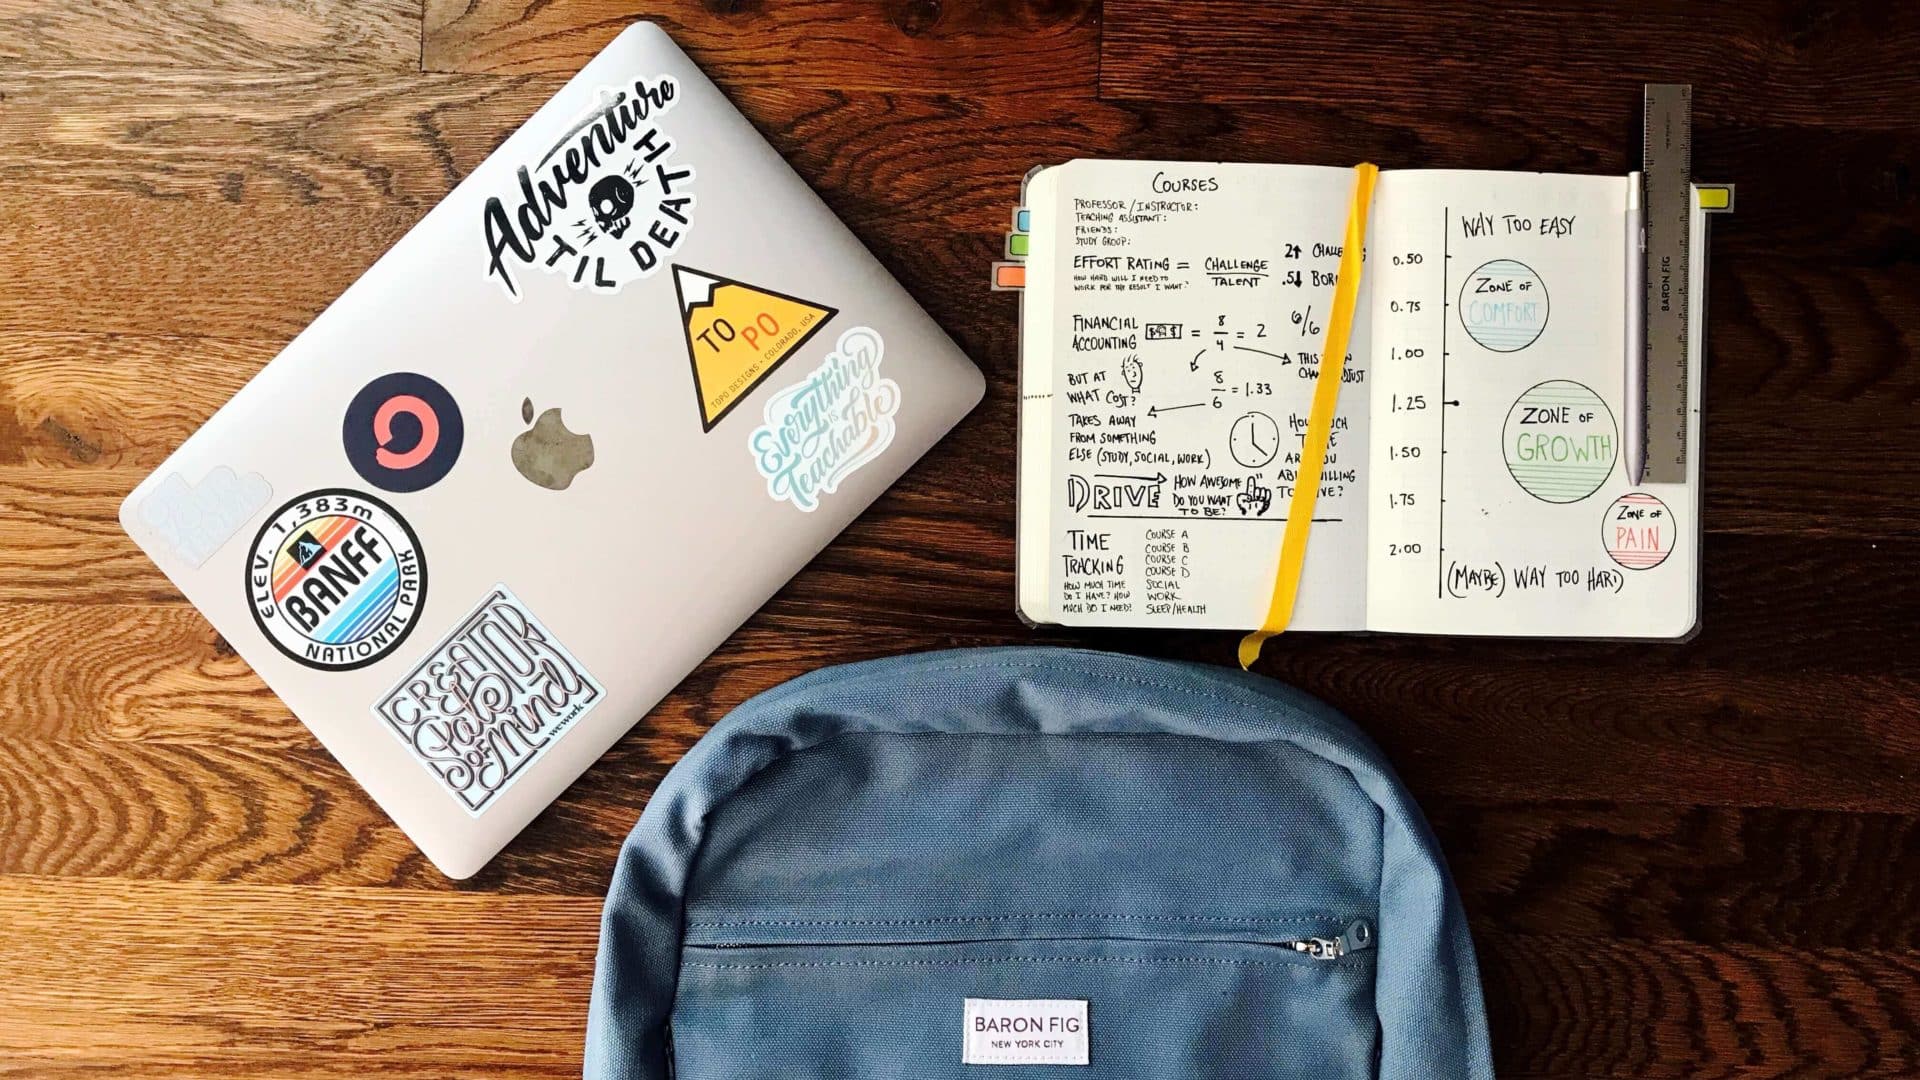 Adventure
TIL DEATH
TO PO
TOPO DESIGNS • COLORADO, USA
Everything
is
Teachable
ELEV. 1,383m
BANFF
NATIONAL PARK
CREATOR
Pals
OF
Mind
wework
COURSES
PROFESSOR / INSTRUCTOR:
TEACHING ASSISTANT:
FRIENDS:
STUDY GROUP:
EFFORT RATING = CHALLENGE
TALENT
HOW HARD WILL I NEED TO
WORK FOR THE RESULT I WANT?
2↑
.5↓
FINANCIAL
ACCOUNTING = 8/4 = 2
6/6
THIS
BUT AT
WHAT COST?
8/6 = 1.33
TAKES AWAY
FROM SOMETHING
ELSE (STUDY, SOCIAL, WORK)
DRIVE
HOW AWESOME
DO YOU WANT
TO BE?
TIME
TRACKING
HOW MUCH TIME
DO I HAVE? HOW
MUCH DO I NEED?
COURSE A
COURSE B
COURSE C
COURSE D
SOCIAL
WORK
SLEEP/HEALTH
WAY TOO EASY
0.50
0.75
1.00
1.25
1.50
1.75
2.00
ZONE OF
COMFORT
ZONE OF
GROWTH
ZONE OF
PAIN
(MAYBE) WAY TOO HARD
BARON FIG
BARON FIG
NEW YORK CITY